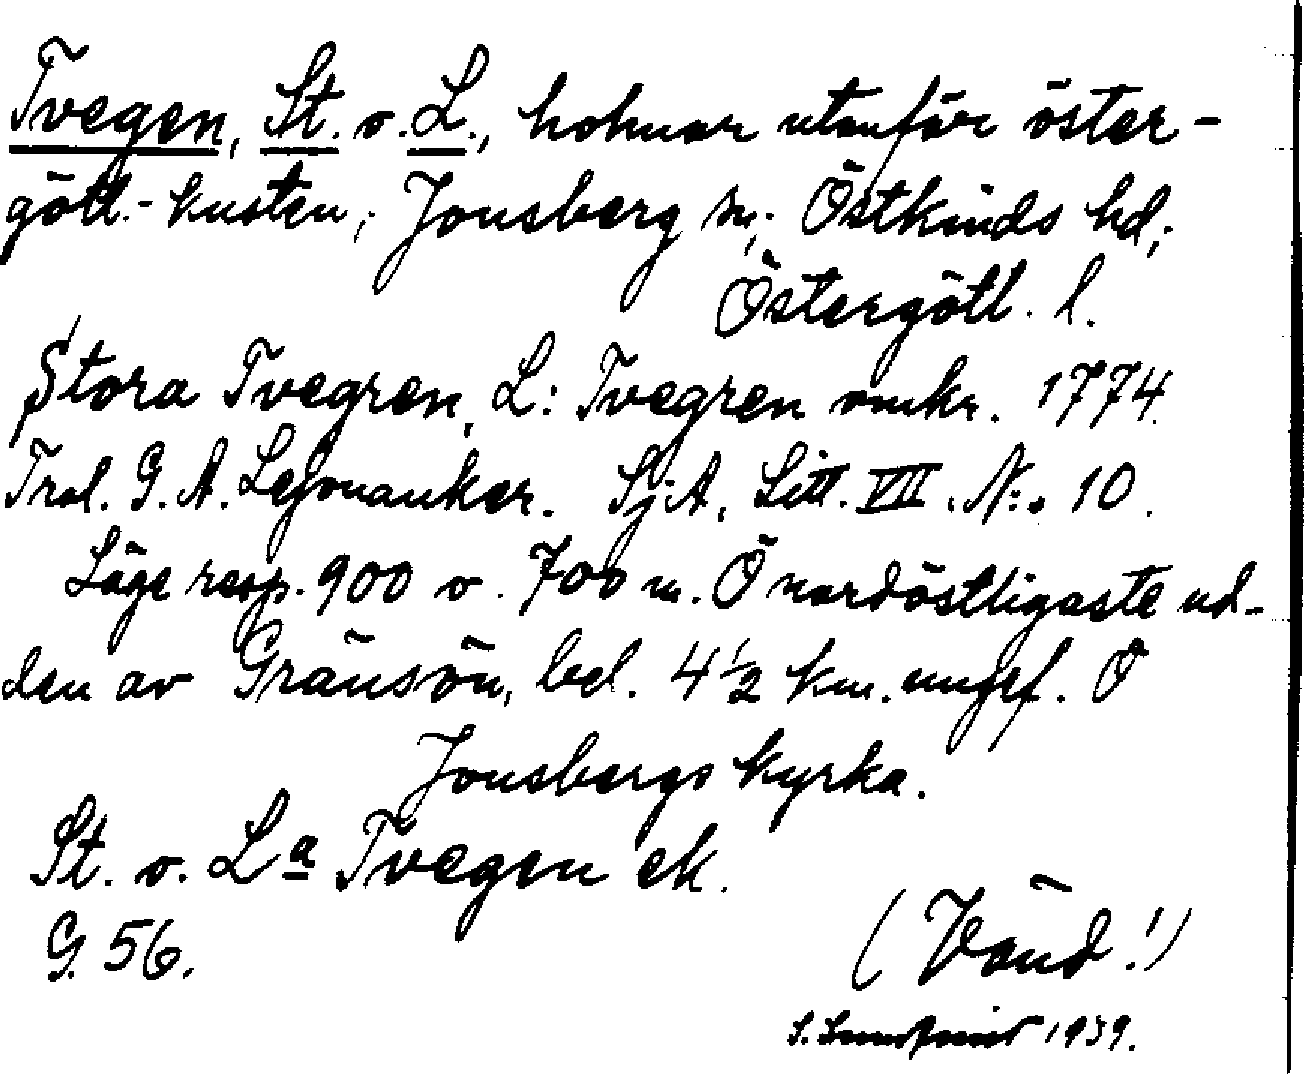 Tvegen, St. o. L., holmar utanför öster-
götl.-kusten; Jonsberg sn; Östkinds hd;
Östergötl. l.
Stora Tvegren, L: Tvegren omkr. 1774.
Trol. G. A. Lejonanker. SjA, Litt. VII. N:o 10.
Läge resp. 900 o. 700 m. Ö nordöstligaste ud-
den av Gränsön, bel. 4 1/2 km. ungef. Ö
Jonsbergs kyrka.
St. o. La Tvegen ek.
G. 56.
(Vänd!)
S. 1939.